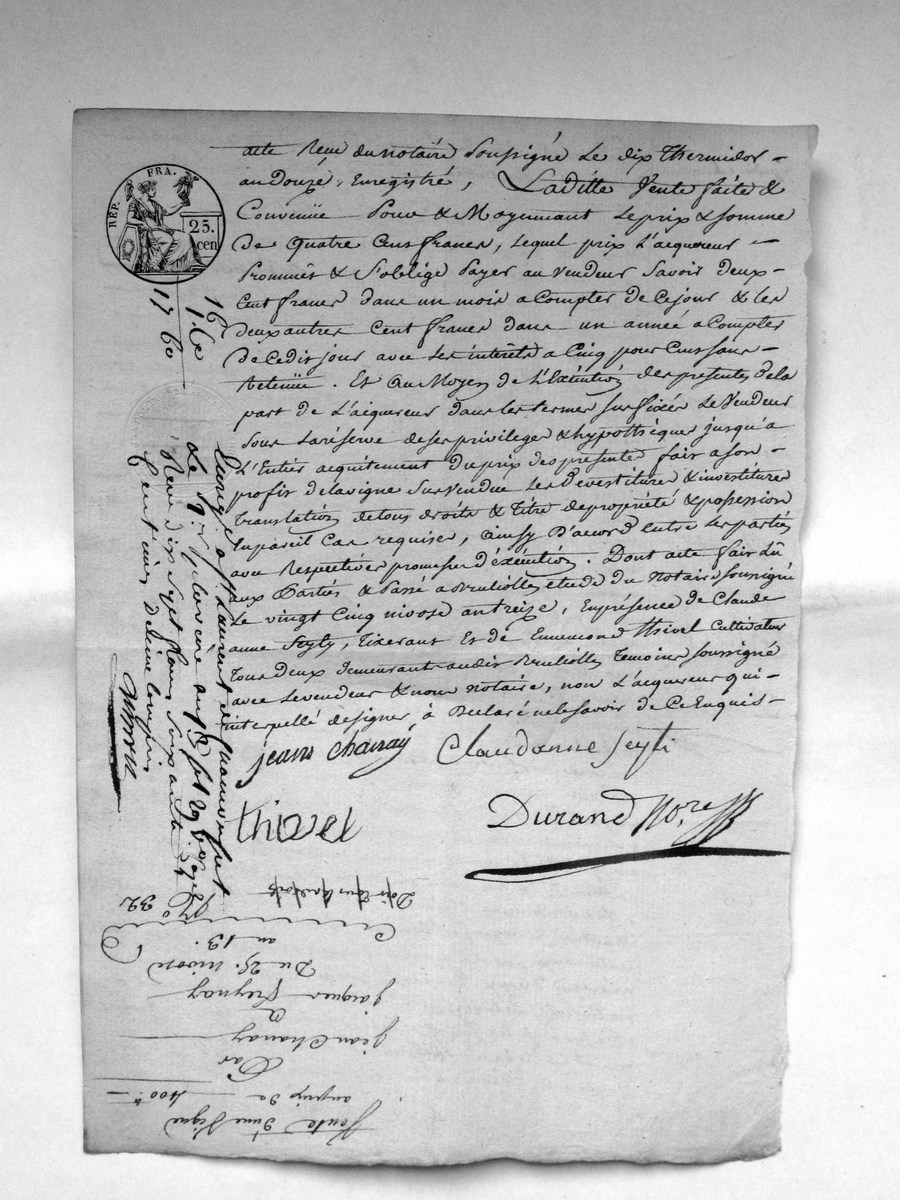 RÉP. FRA.
25.
cen
acte Reçu du notaire Soussigné Le dix Thermidor -
an Douze, Enregistré, Laditte Vente faite &
Convenüe Pour & Moyennant Le prix & somme
De quatre Cent francs, Lequel prix L'acquereur -
Prommêt & S'oblige Payer au Vendeur Savoir deux -
Cent francs dans un mois a Compter de Ce jour & les
deux autres Cent francs dans un année a Compter
de Cedit jour avec Les intérêts a Cinq pour Cent sans -
Retenüe. Et au Moyen de L'Exécution des presentes de la
part de L'acquereur dans les termes sus fixés Le Vendeur
Sous La réserve de ses privileges & hypothèques jusqu'à
L'Entier acquitement du prix des présentes fait a son -
profit de la vigne Sus Vendue Les Devestiture & investiture
Translation de tous droits & titre de propriété & possession
En pareil Cas requise, ainsy D'acord entre Les parties
avec Respectives promesses d'éxécution. Dont acte fait Lû
aux Parties & Passé a Brulliolles étude du Notaire Soussigné
Le vingt Cinq nivose an treize, En présence de Claude
anne Seyty, Tixerant Et de Ennemond thivel Cultivateur
Tous deux demeurants audit Brulliolles Temoins Soussignés
avec Le vendeur & nous notaire, non L'acquereur qui -
interpellé de signer, à Déclaré ne le Savoir de Ce Enquis -
jean chanay Claudanne Seyti
thivel
Durand Nore
16
1.60
17 60
Enregé a St Laurent de Chamousset
Le 19. pluviose an 13 fol 29 Vo
Reçu dix Sept francs Soixante
Centimes Décime Compris
No 32
Vente d'une Vigne
au prix de 400 ₶
Par
jean Chanay
a
jacques Freynay
Du 25. nivose
an 13.